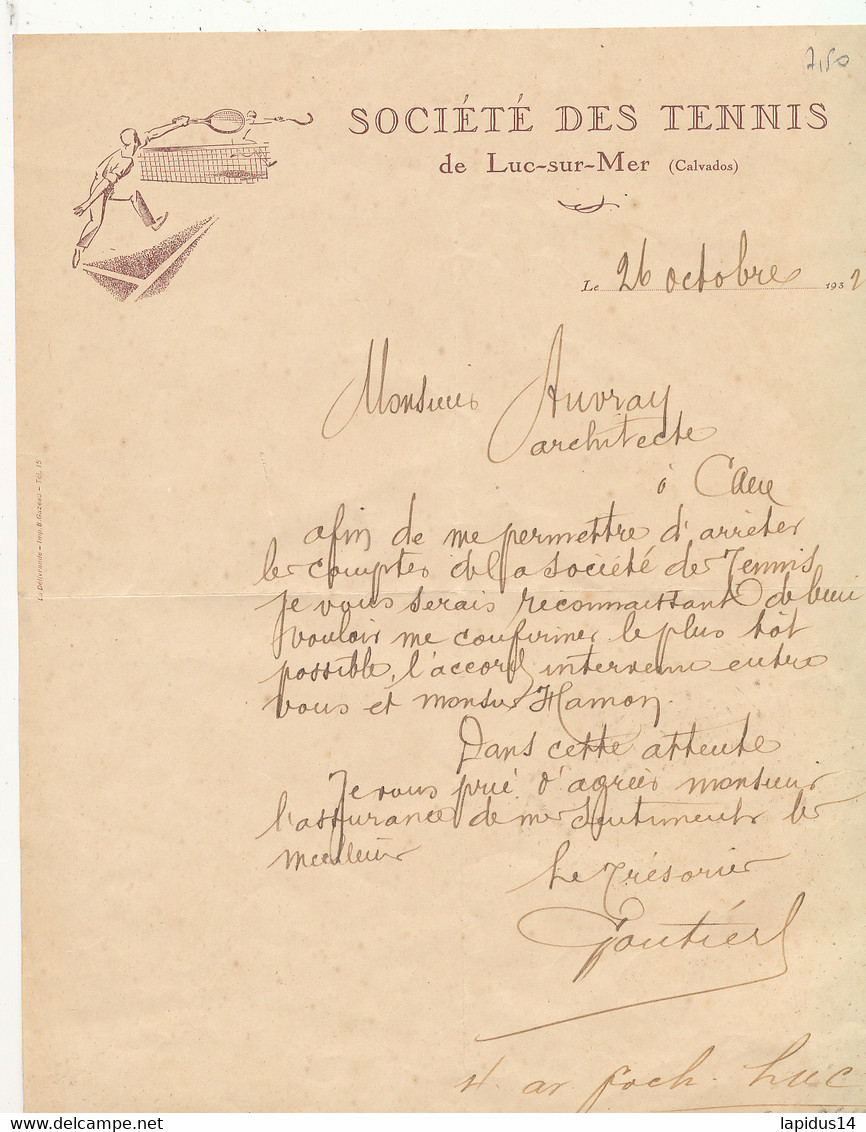 7,50
SOCIÉTÉ DES TENNIS
de Luc-sur-Mer (Calvados)
Le 26 octobre 1932
Monsieur Auvray
architecte
à Caen
afin de me permettre d'arrêter
les comptes de la société de Tennis
je vous serais reconnaissant de bien
vouloir me confirmer le plus tôt
possible, l'accord intervenu entre
vous et monsieur Hamon.
Dans cette attente
Je vous prie d'agréer monsieur
l'assurance de mes sentiments les
meilleurs
Le Trésorier
Gautier
av foch. Luc
La Délivrande - Imp. B. Guzeau - Tél. 15
delcampe.net
lapidus14